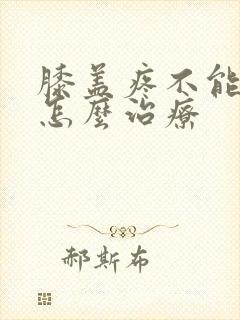 膝盖疼不能
怎麼治療
郝斯布